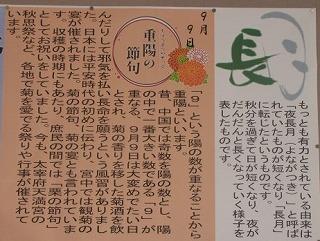 長月
もっとも有力とされている説は
「夜長月（よながつき）」と呼ば
れていたものが短くなり「長月」
に転じたというものです。
秋分を過ぎて日が短くなり、夜が
だんだんと長くなっていく様子を
表したものです。
9月
9日
重陽の
節句
「9」という陽の数が重なることから
重陽といいます。
昔、中国では奇数を陽の数とし、陽
の中で一番大きい数である「9」が
重なる、9月9日は大変めでたい日
とされ、菊の香を移した菊酒を飲
んだりして邪気を払い長命を願うという風習がありまし
た。日本には平安時代の初めに伝わり、宮中では観菊の
宴が催されました。菊の節句、菊の宴とも言われていま
す。収穫の時期にもあたり、庶民の間では「栗の節句」
としてお祝いをしていました。今も、太宰府天満宮の
秋思祭など、各地で菊を愛でる祭りや行事が催されて
います。